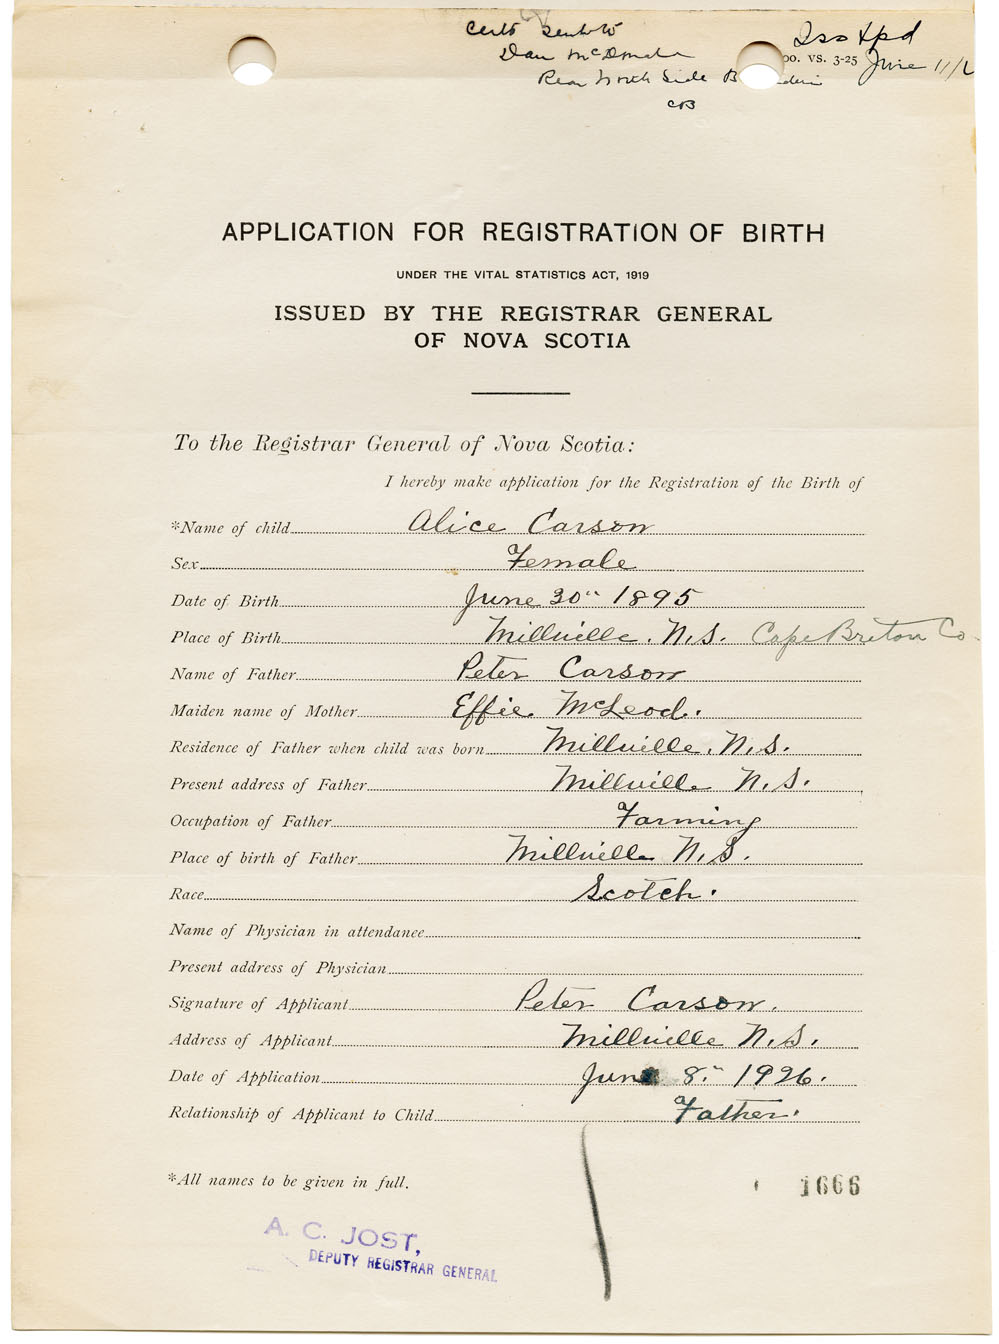 Dan McDonald
oo. vs. 3-25 June 11/2
Rear North Side B
CB
APPLICATION FOR REGISTRATION OF BIRTH
UNDER THE VITAL STATISTICS ACT, 1919
ISSUED BY THE REGISTRAR GENERAL
OF NOVA SCOTIA
To the Registrar General of Nova Scotia:
I hereby make application for the Registration of the Birth of
*Name of child Alice Carson
Sex Female
Date of Birth June 30th 1895
Place of Birth Millville. N.S. Cape Breton Co.
Name of Father Peter Carson
Maiden name of Mother Effie McLeod.
Residence of Father when child was born Millville. N.S.
Present address of Father Millville N.S.
Occupation of Father Farming
Place of birth of Father Millville N.S.
Race Scotch.
Name of Physician in attendance
Present address of Physician
Signature of Applicant Peter Carson.
Address of Applicant Millville N.S.
Date of Application June 8th 1926.
Relationship of Applicant to Child Father.
*All names to be given in full.
1666
A. C. JOST,
DEPUTY REGISTRAR GENERAL